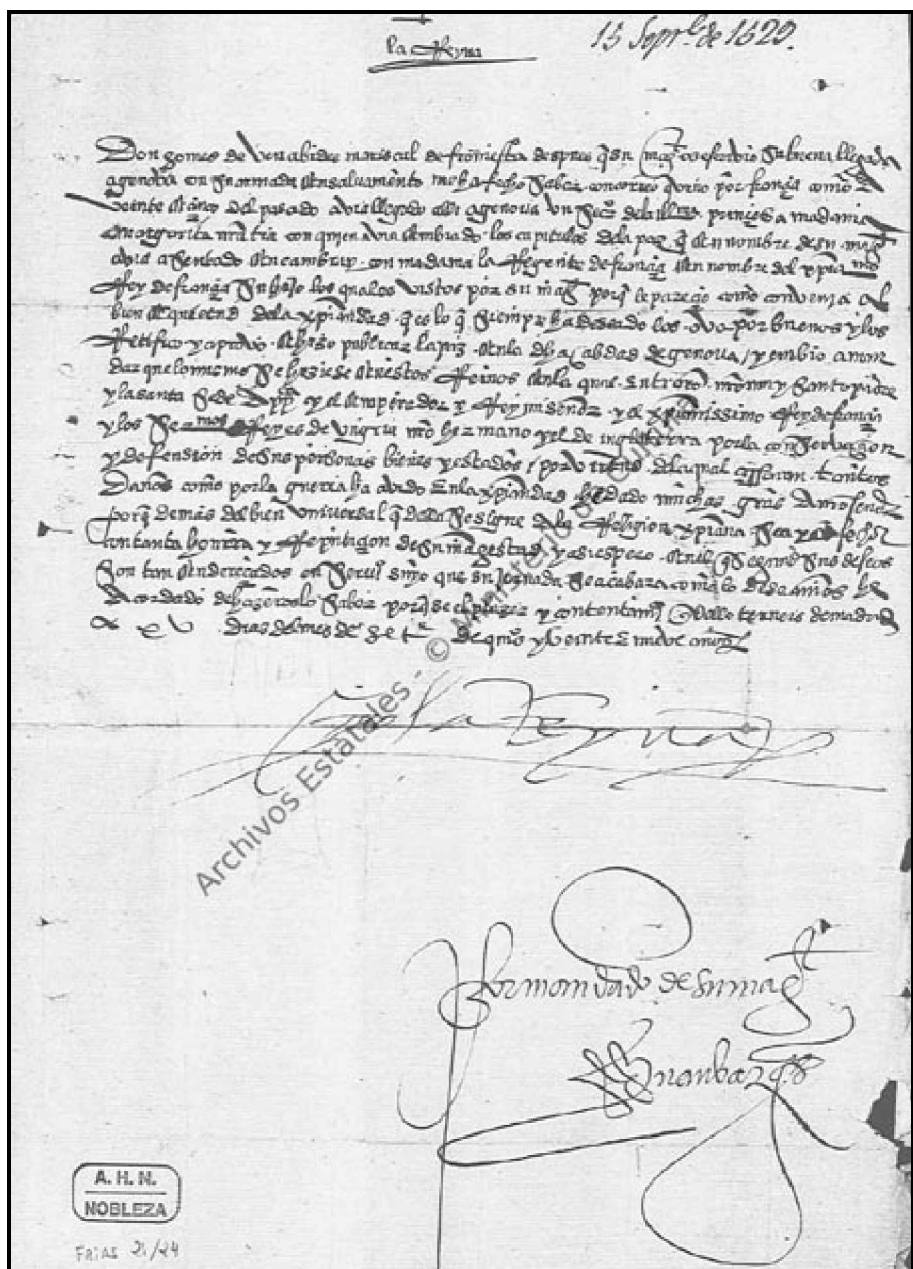 la Reyna
15 Sepre de 1529.
Don gomes de venabides mariscal de fromesta despues q su mag. su buena llegada
a genova con su armada en salvamento me ha fecho saber con correo q vino por françia como a
veinte del pasado avia llegado alli a genova un de la illma princesa madama
margarita nra tia con quien avia embiado los capitulos de la paz q en nombre de su mag
avia asentado en cambray con madama la Regente de françia en nombre del xpianmo
Rey de françia su hijo los quales vistos por su mag porq le pareçio como convenia al
bien e quietud dela xpiandad q es lo q siempre ha deseado los ovo por buenos y los
Retifico y aprovo e hizo publicar la paz en la dha çibdad de genova / y embio a man
dar que lo mismo se hiziese en estos Reinos en la qual entraron muy santo padre
y la santa sede app y el emperador y Rey mi señor y el xpianissimo Rey de françia
y los Sermos Reyes de ungria mo hermano y el de inglaterra por la conservaçion
y defension de sus personas bienes y estados / por virtud dela qual çessaran tantos
Daños como por la guerra ha avido en la xpiandad he dado muchas graçias a nro señor
porq demas del bien universal q della se sigue a la Religion xpiana sea
con tanta honrra y Reputaçion de su magestad y asi espero en el q segund sus deseos
son tan endereçados en serviº suyo que su jornada se acabara como lo deseamos he
acordado de hazeroslo saber porq se el plazer y contentamº q dello terneis de madrid
a xv dias del mes de setº de qumo y veinte e nueve años
yo la Reyna
Por mandado de su mag
Juan vazqs
A. H. N.
NOBLEZA
FRIAS 21/24
Archivos Estatales, © Ministerio de Cultura